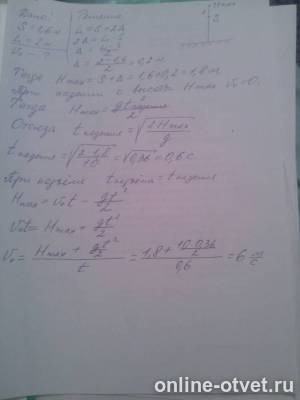 Дано: Решение
S=1,6м L=S+2Δ
L=2м 2Δ=L-S
V₀-? Δ=(L-S)/2
Δ=(2-1,6)/2=0,2м
Hmax
Тогда Hmax=S+Δ=1,6+0,2=1,8м
При падении с высоты Hmax V₀=0.
Тогда Hmax=gt²падения/2
Отсюда tпадения=√(2Hmax/g)
tпадения=√(2·1,8/10)=√0,36=0,6с
При подъёме tподъёма=tпадения
Hmax=V₀t-gt²/2
V₀t=Hmax+gt²/2
V₀=(Hmax+gt²/2)/t=(1,8+10·0,36/2)/0,6=6 м/с
online-otvet.ru